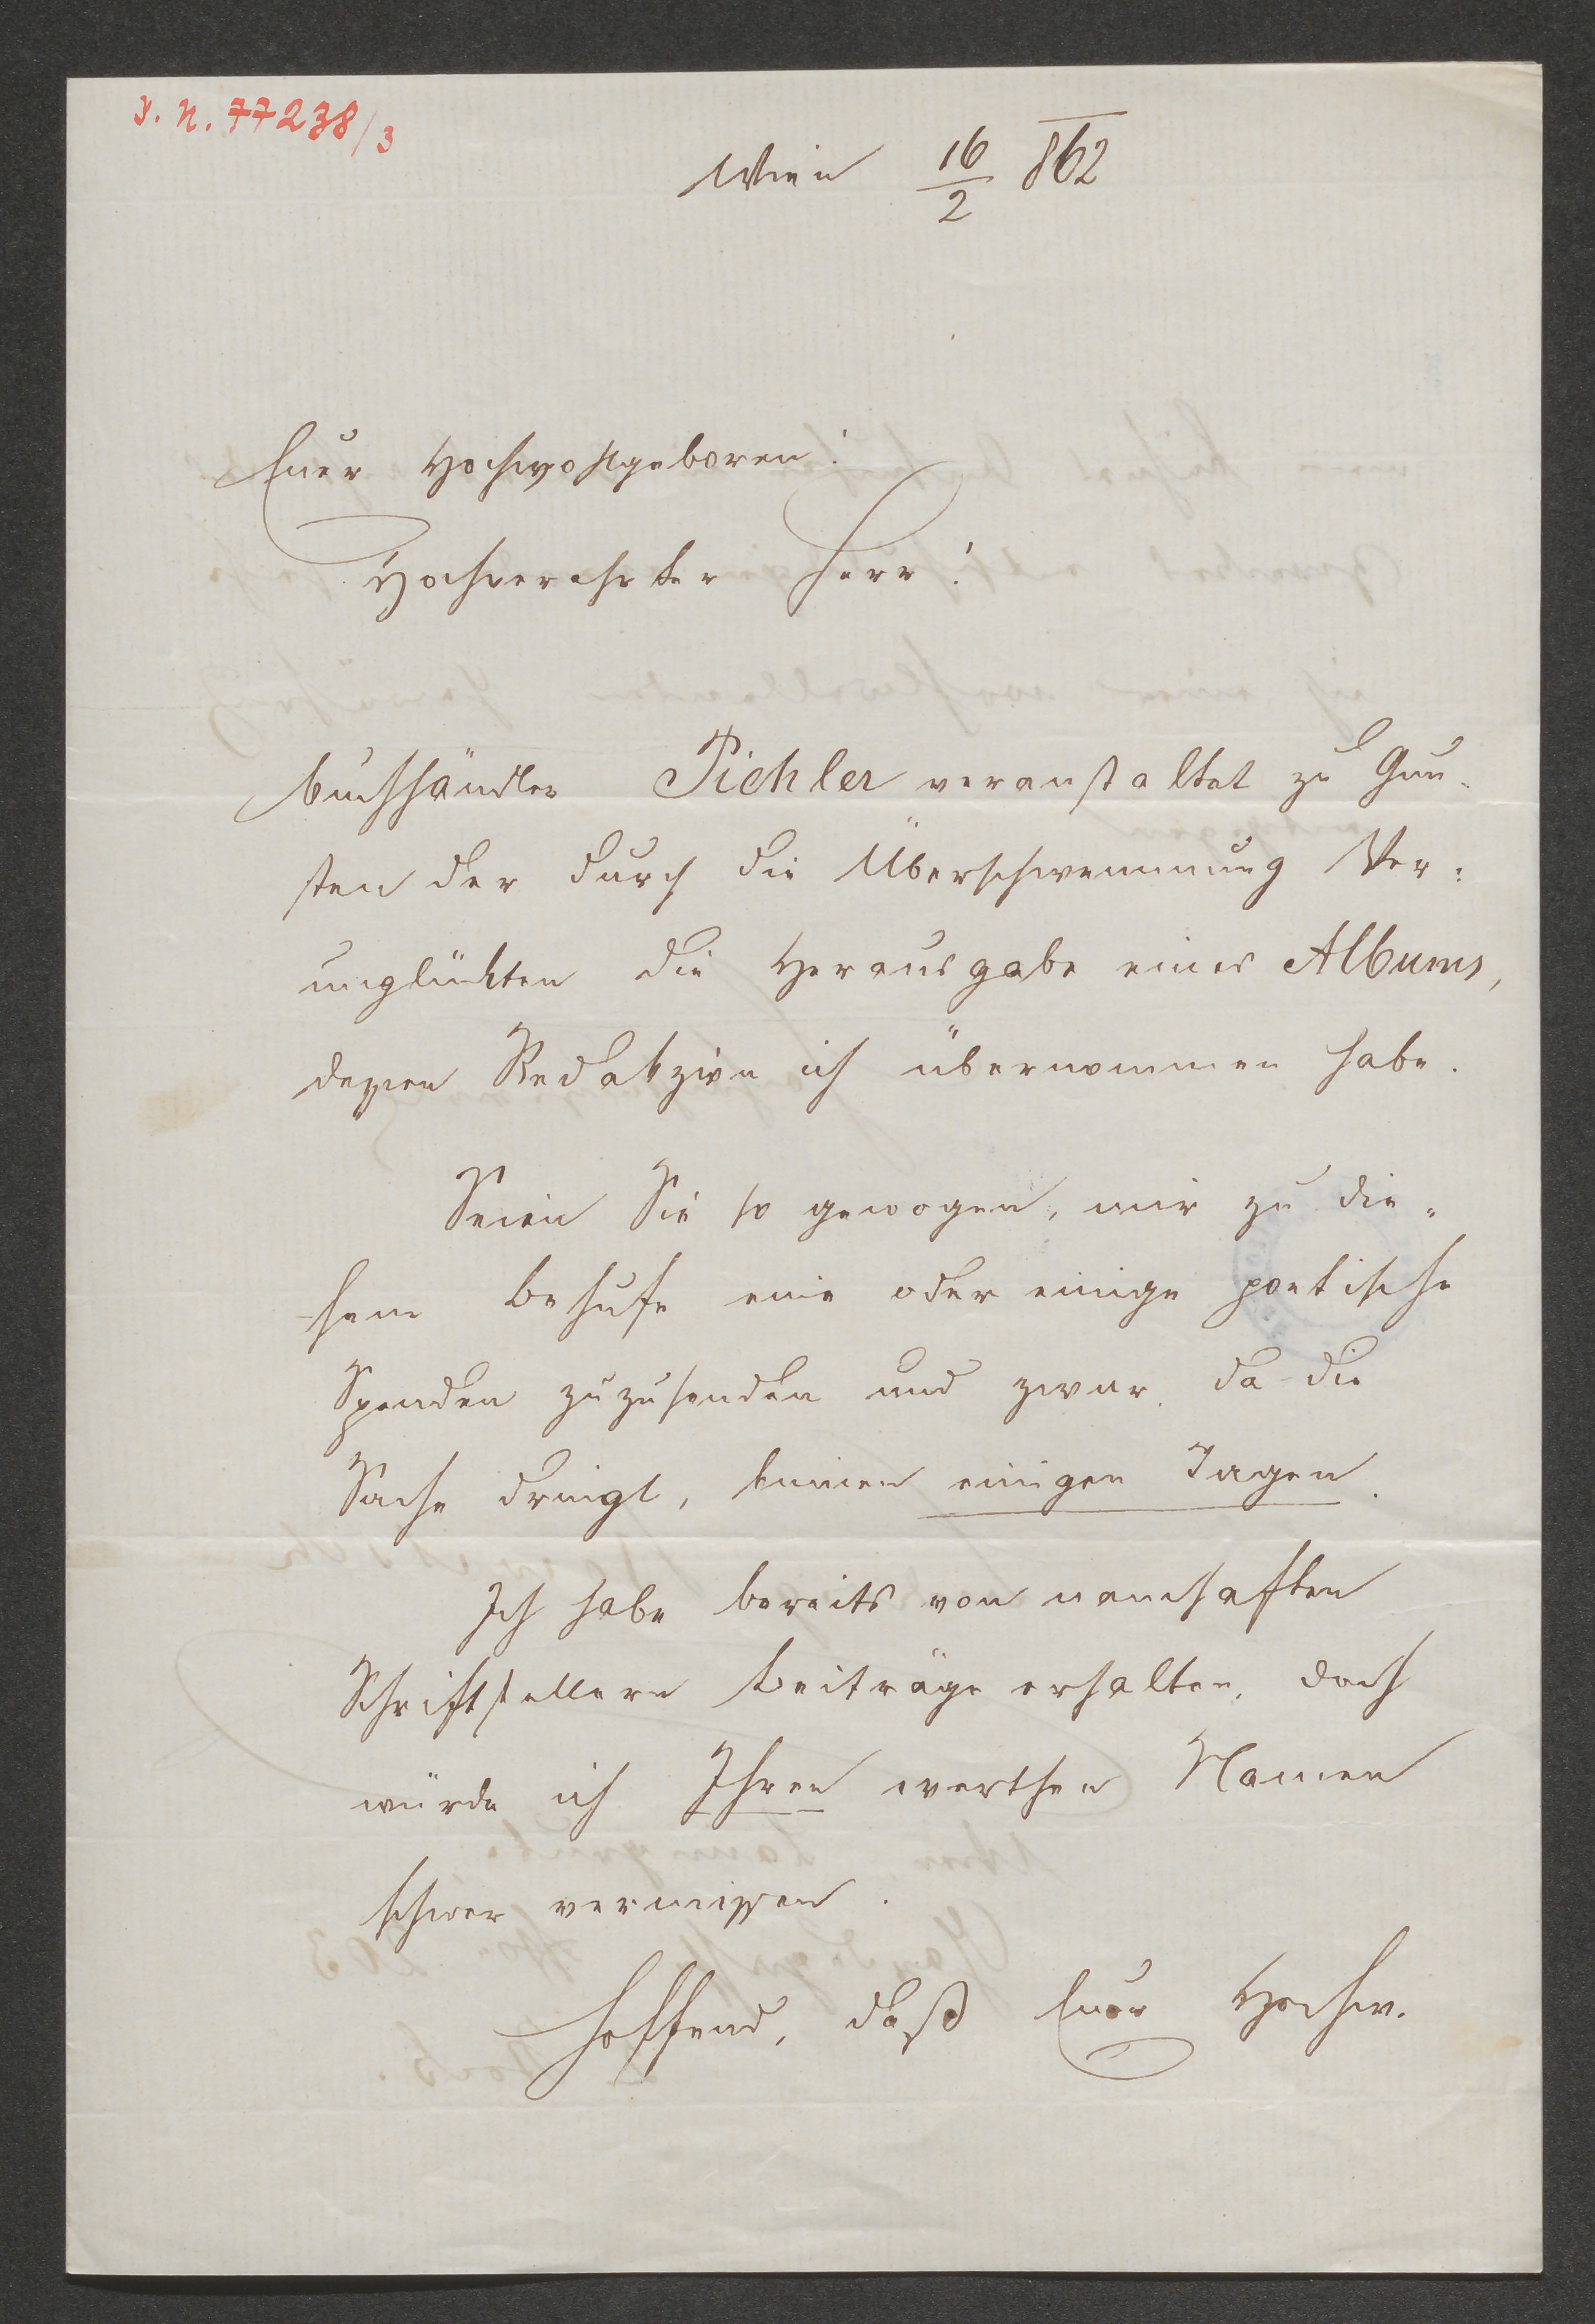 I. N. 77238/3
Wien 16/2 862
Euer Hochwohlgeboren!
Hochverehrter Herr!
Buchhändler Pichler veranstaltet zu Gun-
sten der durch die Überschwemmung Ver-
unglükten die Herausgabe eines Albums,
dessen Redakzion ich übernommen habe.
Seien Sie so gewogen, mir zu die-
sem Behufe eine oder einige poetische
Spenden zuzusenden und zwar, da die
Sache dringt, binnen einigen Tagen.
Ich habe bereits von namhaften
Schriftstellern Beiträge erhalten, doch
würde ich Ihren werthen Namen
schwer vermissen.
Hoffend, daß Euer Hochw.